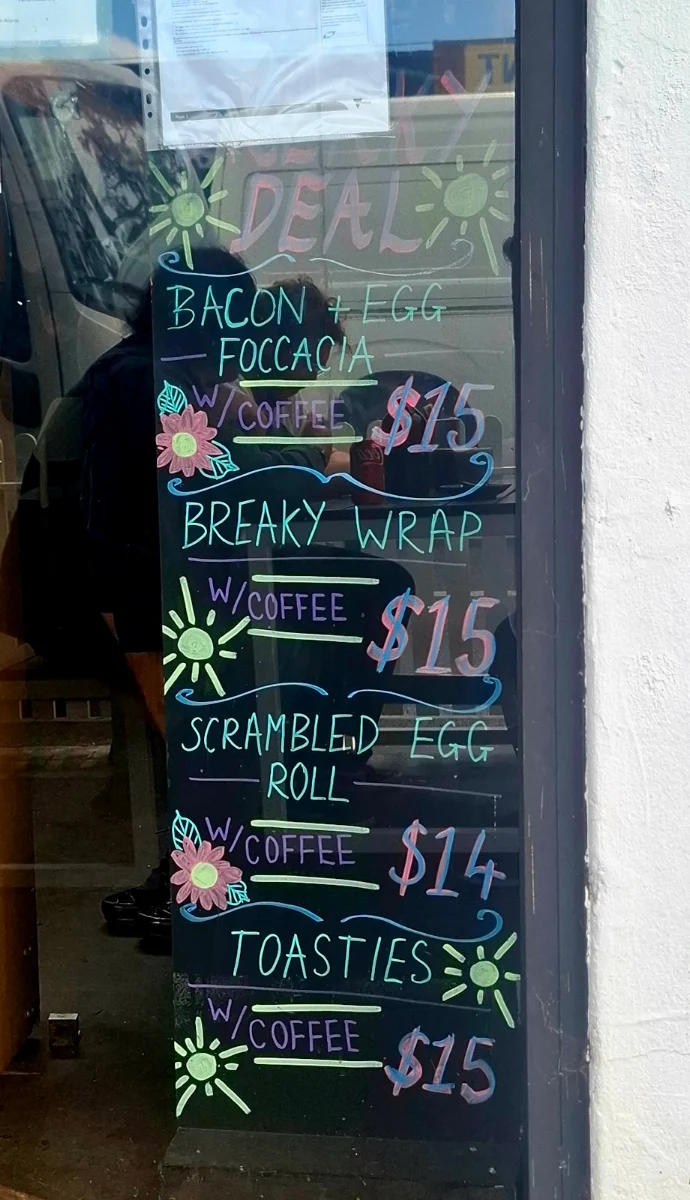 DEAL
BACON + EGG
FOCCACIA
W/COFFEE $15
BREAKY WRAP
W/COFFEE $15
SCRAMBLED EGG
ROLL
W/COFFEE $14
TOASTIES
W/COFFEE $15